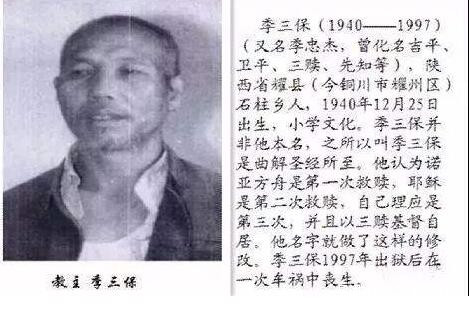 季三保(1940——1997)
(又名季忠杰,曾化名吉平、
卫平、三赎、先知等),陕
西省耀县(今铜川市耀州区)
石柱乡人,1940年12月25日
出生,小学文化。季三保并
非他本名,之所以叫季三保
是曲解圣经所至。他认为诺
亚方舟是第一次救赎,耶稣
是第二次救赎,自己理应是
第三次,并且以三赎基督自
居。他名字就做了这样的修
改。季三保1997年出狱后在
一次车祸中丧生。
教主 季三保